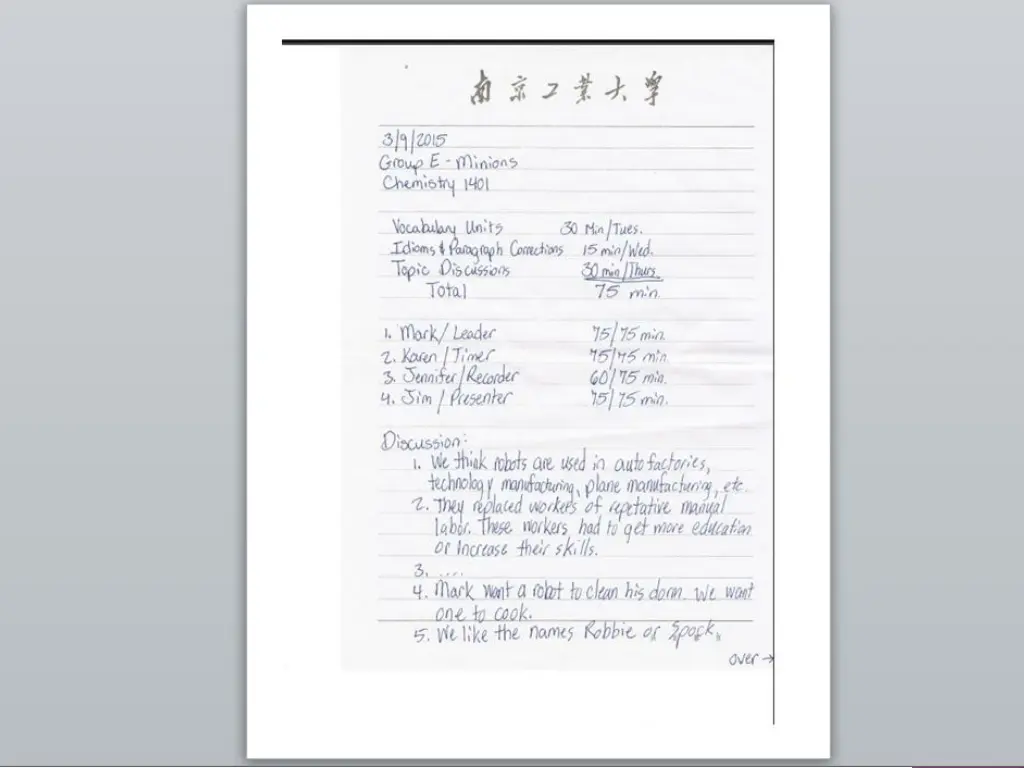 南京工业大学
3/9/2015
Group E - Minions
Chemistry 1401
Vocabulary Units 30 Min/Tues.
Idioms & Paragraph Corrections 15 min/Wed.
Topic Discussions 30 min/Thurs.
Total 75 min.
1. Mark/Leader 75/75 min.
2. Karen/Timer 75/75 min.
3. Jennifer/Recorder 60/75 min.
4. Jim/Presenter 75/75 min.
Discussion:
1. We think robots are used in auto factories,
technology manufacturing, plane manufacturing, etc.
2. They replaced workers of repetative manual
labor. These workers had to get more education
or increase their skills.
3. ....
4. Mark want a robot to clean his dorm. We want
one to cook.
5. We like the names Robbie or Spock.
over →